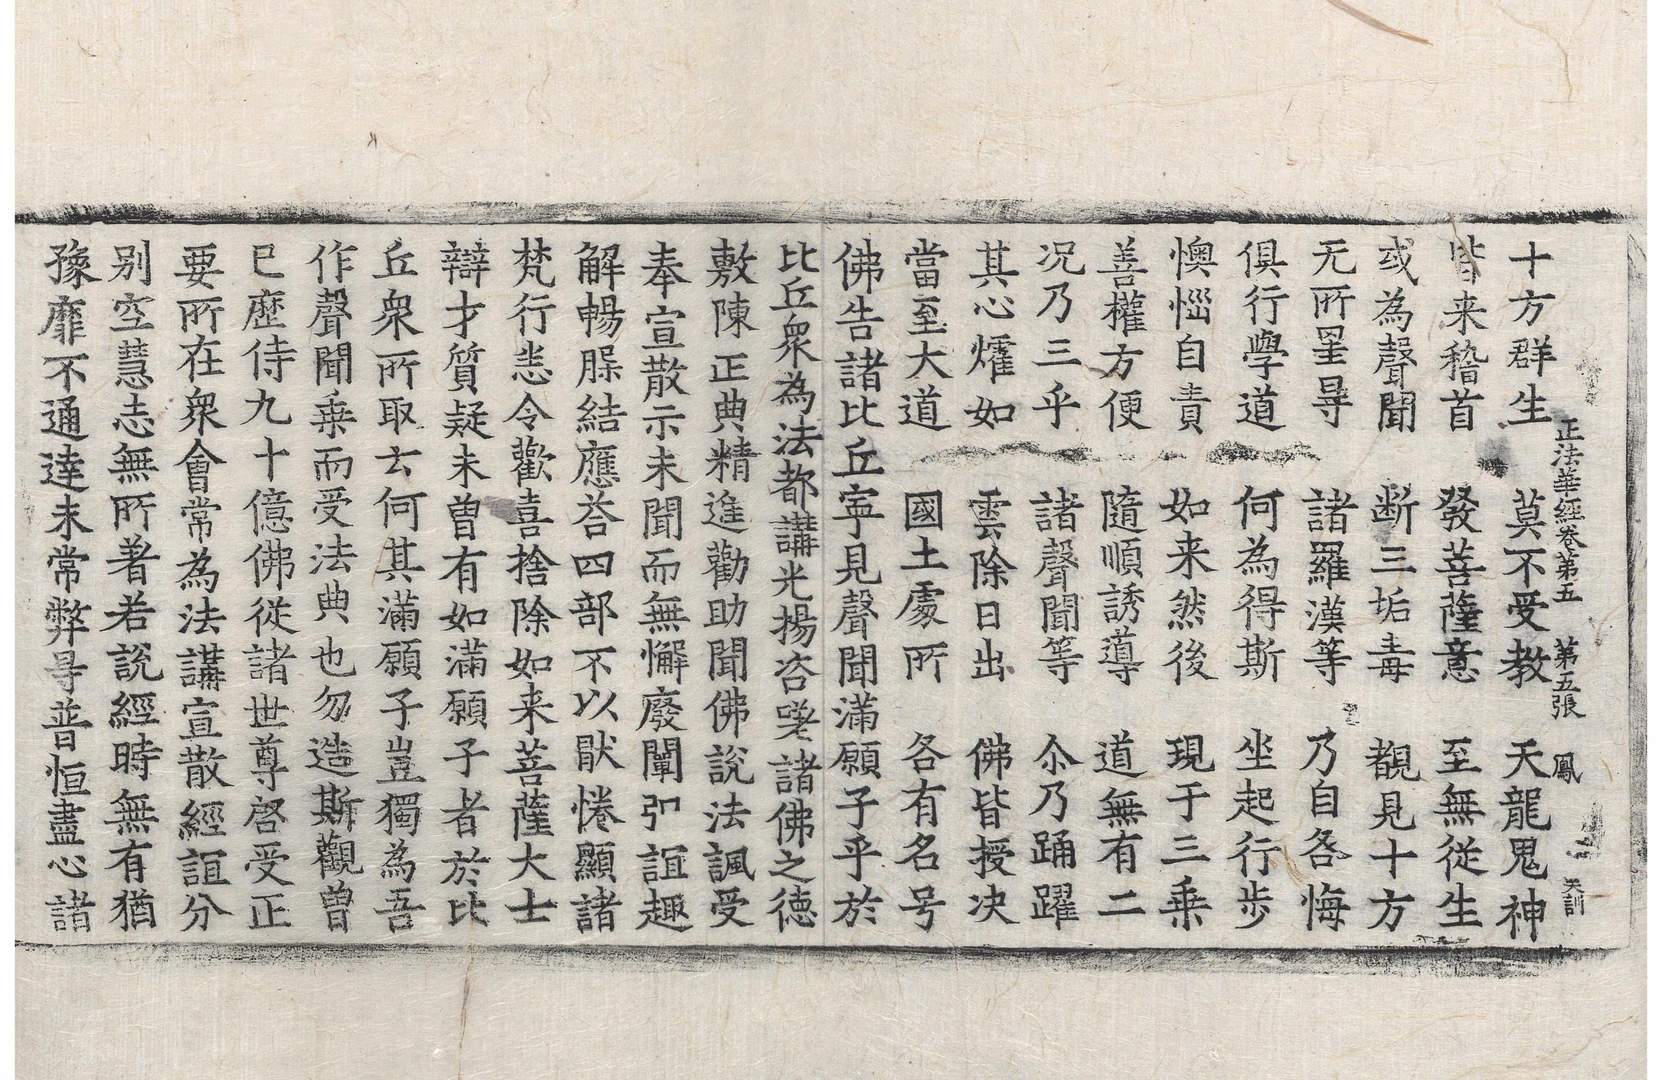 正法華經卷第五 第五張 鳳 天訓
十方群生 莫不受教 天龍鬼神
皆来稽首 發菩薩意 至無從生
或為聲聞 断三垢毒 覩見十方
无所罣㝵 諸羅漢等 乃自咎悔
俱行學道 何為得斯 坐起行步
懊惱自責 如来然後 現于三乗
善權方便 隨順誘導 道無有二
况乃三乎 諸聲聞等 尒乃踊躍
其心燿如 雲除日出 佛皆授决
當至大道 國土處所 各有名号
佛告諸比丘寧見聲聞滿願子乎於
比丘衆為法都講光揚咨嗟諸佛之德
敷陳正典精進勸助聞佛說法諷受
奉宣散示未聞而無懈廢闡弘誼趣
解暢𦡀結應荅四部不以猒惓顯諸
梵行悉令歡喜捨除如来菩薩大士
辯才質疑未曽有如滿願子者於比
丘衆所取云何其滿願子豈獨為吾
作聲聞乗而受法典也勿造斯觀曽
已歷侍九十億佛從諸世尊啓受正
要所在衆會常為法講宣散經誼分
别空慧志無所著若說經時無有猶
豫靡不通達未常弊㝵普恒盡心諸